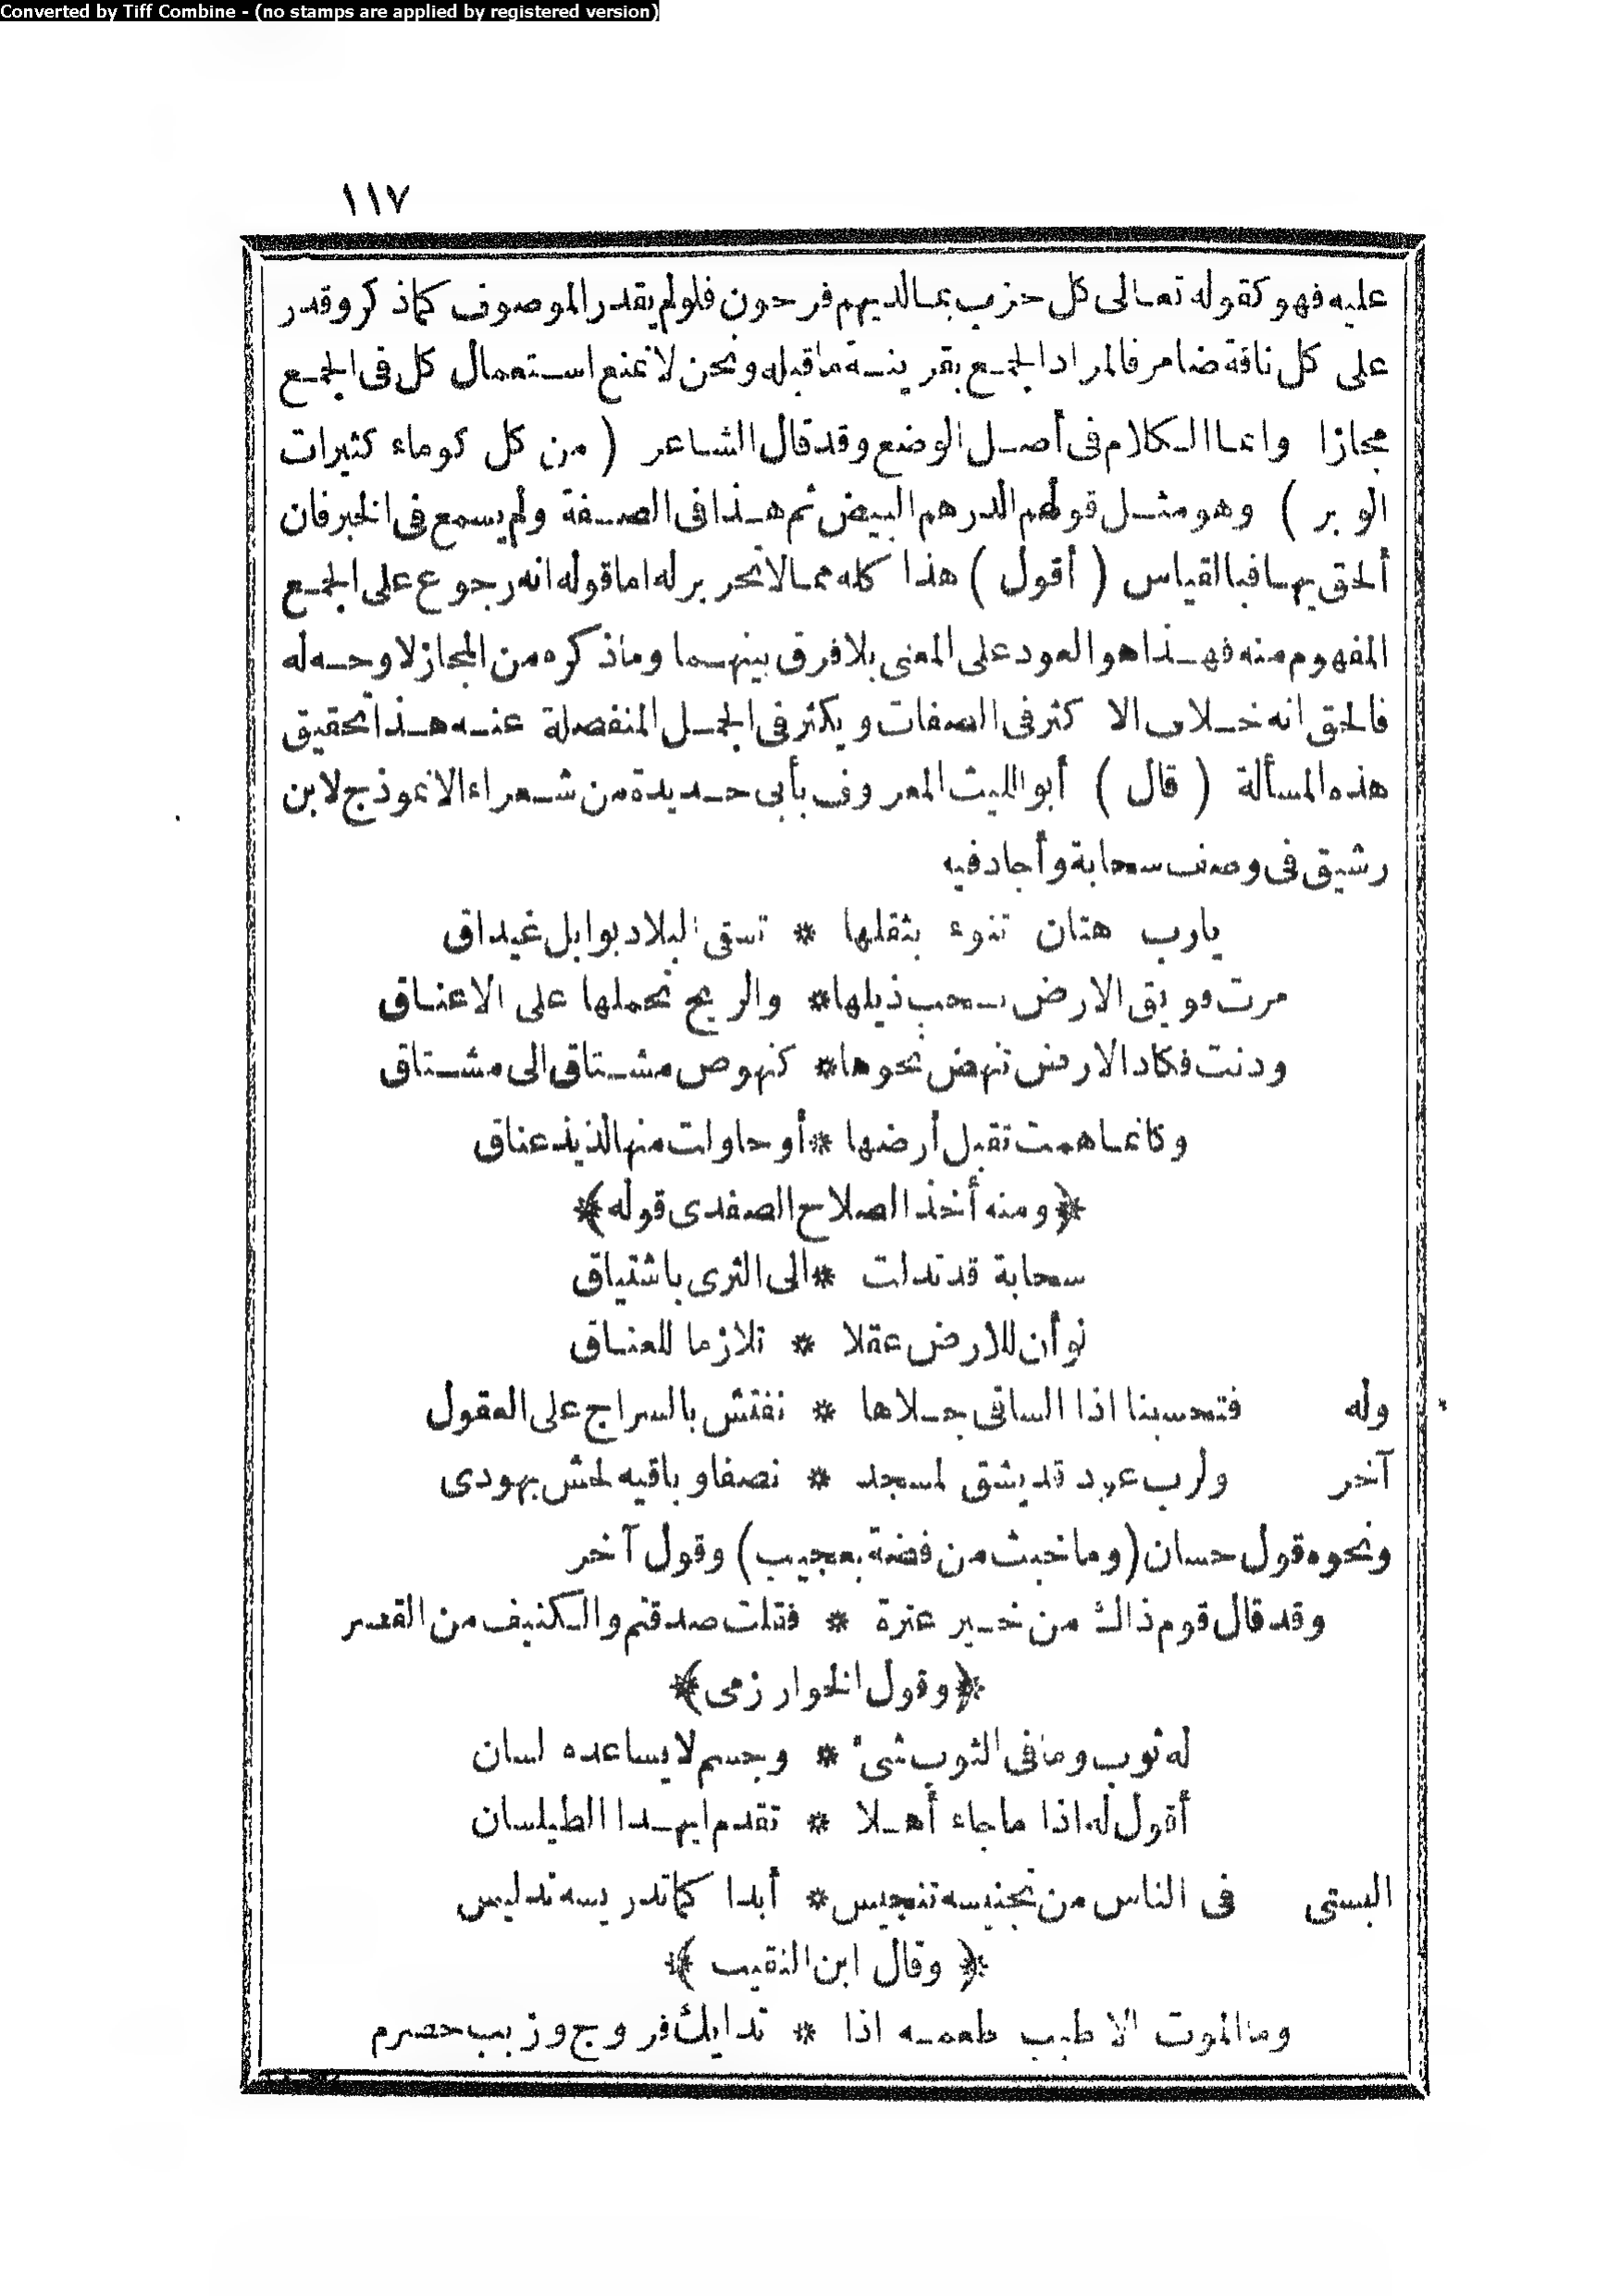 Converted by Tiff Combine - (no stamps are applied by registered version)
١١٧
عليه فهو كقوله تعالى كل حزب بما لديهم فرحون فلو لم يقدر الموصوف كما ذكر وقدر
على كل ناقة ضامر فالمراد الجمع بقرينة ما قبله ونحن لا نمنع استعمال كل فى الجمع
مجازا وانما الكلام فى أصل الوضع وقد قال الشاعر ( من كل كوماء كثيرات
الوبر ) وهو مثل قولهم الدرهم البيض ثم هذا فى الصفة ولم يسمع فى الخبر فان
ألحق بها فبالقياس ( أقول ) هذا كله مما لا تحرير له اما قوله انه رجوع على الجمع
المفهوم منه فهذا هو العود على المعنى بلا فرق بينهما وما ذكره من المجاز لا وجه له
فالحق انه خلاف الاكثر فى الصفات ويكثر فى الجمل المنفصلة عنه هذا تحقيق
هذه المسألة ( قال ) أبو الليث المعروف بأبى حديدة من شعراء الانموذج لابن
رشيق فى وصف سحابة وأجاد فيه
يارب هتان تنوء بثقلها * تسقى البلاد بوابل غيداق
مرت فويق الارض تسحب ذيلها * والريح تحملها على الاعناق
ودنت فكاد الارض تنهض نحوها * كنهوض مشتاق الى مشتاق
وكانما همت تقبل أرضها * أو حاولت منها لذيذ عناق
﴿ومنه أخذ الصلاح الصفدى قوله﴾
سحابة قد تدلت * الى الثرى باشتياق
لو أن للارض عقلا * تلازما للعناق
وله فتحسبنا اذا الساقى جلاها * نفتش بالسراج على العقول
آخر ولرب عود قد يشق لمسجد * نصفا وباقيه لحش يهودى
ونحوه قول حسان (وما خبث من فضة بعجيب) وقول آخر
وقد قال قوم ذاك من خير عنزة * فقلت صدقتم والكنيف من القصر
﴿وقول الخوارزمى﴾
له ثوب وما فى الثوب شئ * وجسم لا يساعده لسان
أقول له اذا ما جاء أهلا * تقدم ايهذا الطيلسان
البستى فى الناس من تجنيسه تنجيس * أبدا كما تدريسه تدليس
﴿ وقال ابن النقيب ﴾
وما الموت الا طيب طعمه اذا * تدايك فروج وزبب حصرم